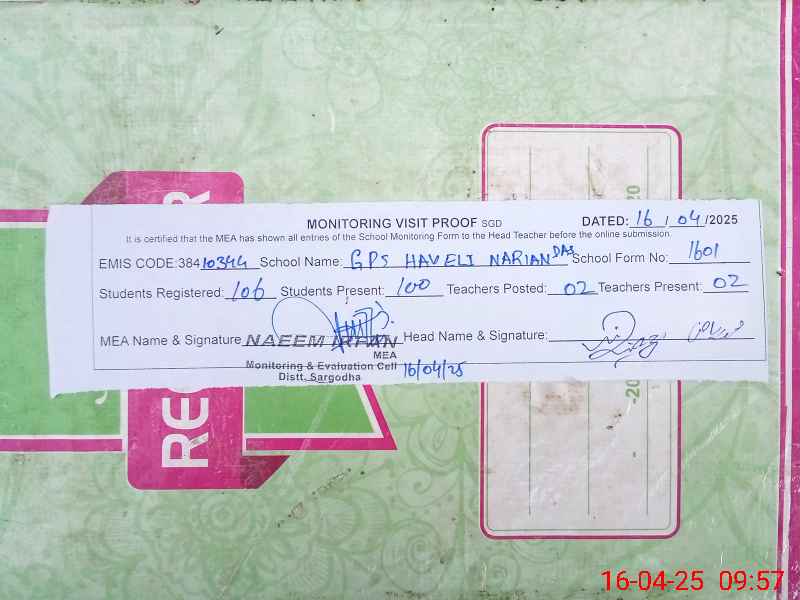 MONITORING VISIT PROOF SGD DATED: 16 / 04 /2025
It is certified that the MEA has shown all entries of the School Monitoring Form to the Head Teacher before the online submission.
EMIS CODE:38410344 School Name: GPS HAVELI NARIAN DAS School Form No: 1601
Students Registered: 106 Students Present: 100 Teachers Posted: 02 Teachers Present: 02
MEA Name & Signature NAEEM IRFAN Head Name & Signature:
MEA
Monitoring & Evaluation Cell 16/04/25
Distt. Sargodha
16-04-25 09:57